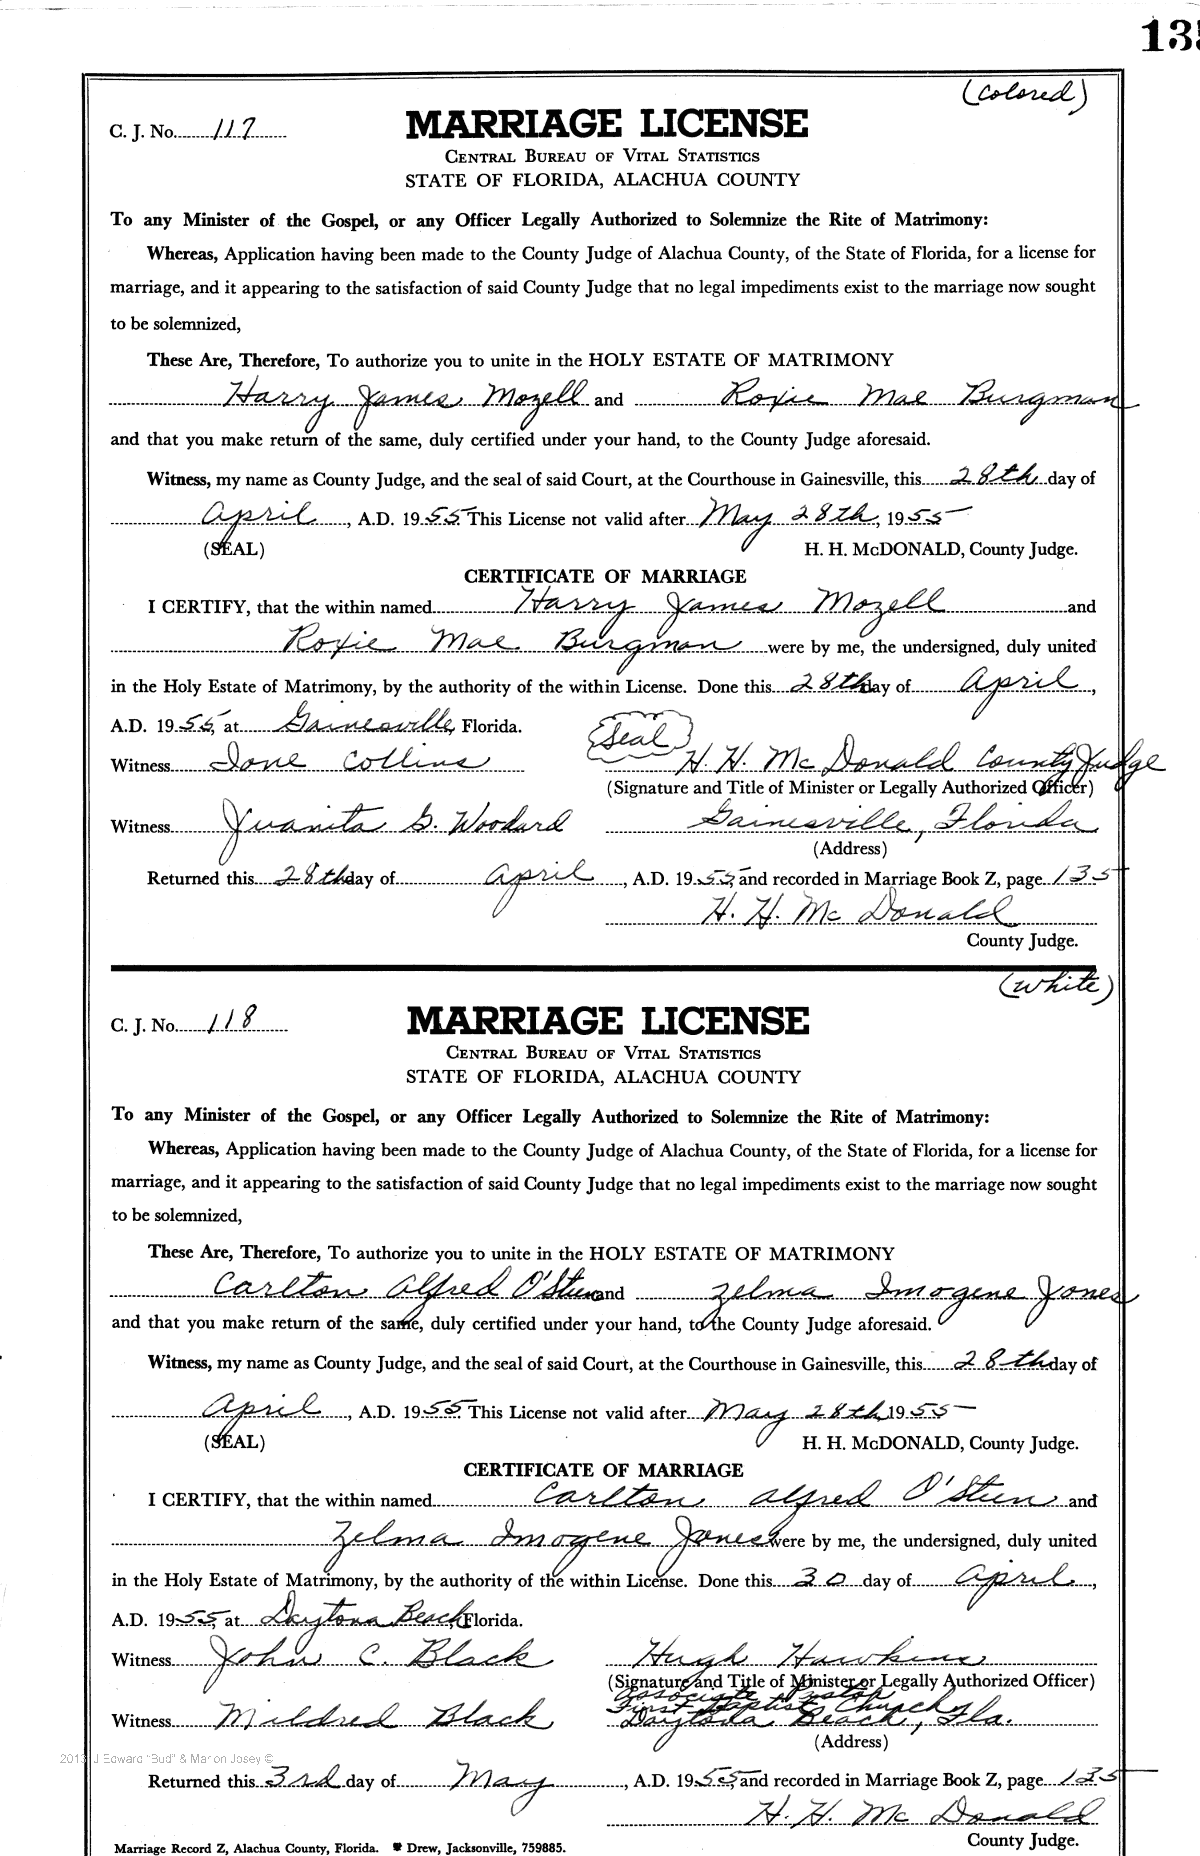 135
(colored)
C. J. No. 117 MARRIAGE LICENSE
CENTRAL BUREAU OF VITAL STATISTICS
STATE OF FLORIDA, ALACHUA COUNTY
To any Minister of the Gospel, or any Officer Legally Authorized to Solemnize the Rite of Matrimony:
Whereas, Application having been made to the County Judge of Alachua County, of the State of Florida, for a license for
marriage, and it appearing to the satisfaction of said County Judge that no legal impediments exist to the marriage now sought
to be solemnized,
These Are, Therefore, To authorize you to unite in the HOLY ESTATE OF MATRIMONY
Harry James Mozell and Roxie Mae Burgman
and that you make return of the same, duly certified under your hand, to the County Judge aforesaid.
Witness, my name as County Judge, and the seal of said Court, at the Courthouse in Gainesville, this 28th day of
April, A.D. 1955. This License not valid after May 28th, 1955
(SEAL) H. H. McDONALD, County Judge.
CERTIFICATE OF MARRIAGE
I CERTIFY, that the within named Harry James Mozell and
Roxie Mae Burgman were by me, the undersigned, duly united
in the Holy Estate of Matrimony, by the authority of the within License. Done this 28th day of April,
A.D. 1955, at Gainesville, Florida.
Seal
Witness Ione Collins H. H. McDonald County Judge
(Signature and Title of Minister or Legally Authorized Officer)
Witness Juanita G. Woodard Gainesville, Florida
(Address)
Returned this 28th day of April, A.D. 1955, and recorded in Marriage Book Z, page 135
H. H. McDonald
County Judge.
(white)
C. J. No. 118 MARRIAGE LICENSE
CENTRAL BUREAU OF VITAL STATISTICS
STATE OF FLORIDA, ALACHUA COUNTY
To any Minister of the Gospel, or any Officer Legally Authorized to Solemnize the Rite of Matrimony:
Whereas, Application having been made to the County Judge of Alachua County, of the State of Florida, for a license for
marriage, and it appearing to the satisfaction of said County Judge that no legal impediments exist to the marriage now sought
to be solemnized,
These Are, Therefore, To authorize you to unite in the HOLY ESTATE OF MATRIMONY
Carlton Alfred O'Steen and Zelma Imogene Jones
and that you make return of the same, duly certified under your hand, to the County Judge aforesaid.
Witness, my name as County Judge, and the seal of said Court, at the Courthouse in Gainesville, this 28th day of
April, A.D. 1955. This License not valid after May 28th, 1955
(SEAL) H. H. McDONALD, County Judge.
CERTIFICATE OF MARRIAGE
I CERTIFY, that the within named Carlton Alfred O'Steen and
Zelma Imogene Jones were by me, the undersigned, duly united
in the Holy Estate of Matrimony, by the authority of the within License. Done this 30 day of April,
A.D. 1955, at Daytona Beach, Florida.
Witness John C. Black Hugh Hawkins
(Signature and Title of Minister or Legally Authorized Officer)
Associate Pastor
First Baptist Church
Witness Mildred Black Daytona Beach, Fla.
(Address)
2013 J Edward "Bud" & Marion Josey ©
Returned this 3rd day of May, A.D. 1955, and recorded in Marriage Book Z, page 135
H. H. McDonald
County Judge.
Marriage Record Z, Alachua County, Florida. Drew, Jacksonville, 759885.